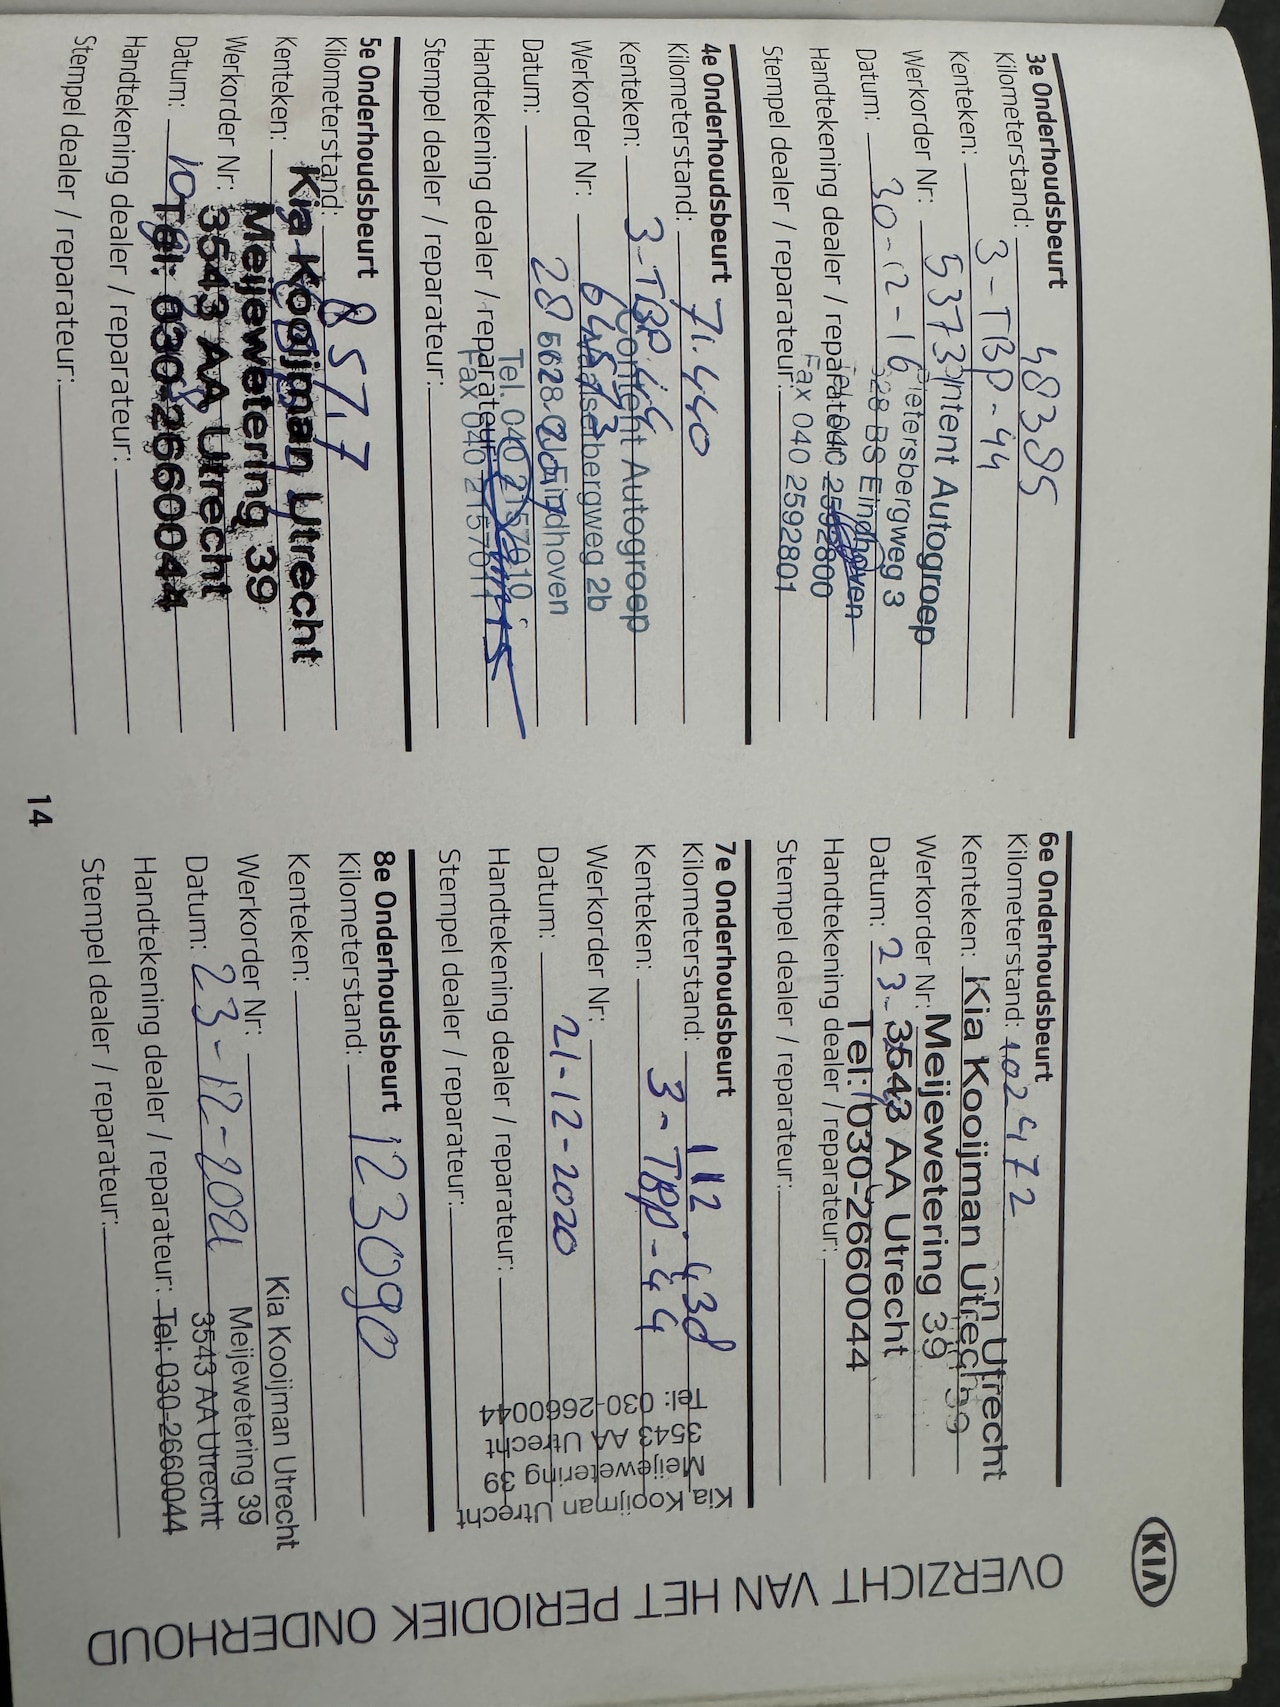 KIA
OVERZICHT VAN HET PERIODIEK ONDERHOUD
3e Onderhoudsbeurt
Kilometerstand: 48395
Kenteken: 3-TBP-44
Werkorder Nr: 53733
Datum: 30-12-16
Handtekening dealer / reparateur:
Stempel dealer / reparateur:
Autogroep
Pietersbergweg 3
BS Eindhoven
040 2592800
Fax 040 2592801
4e Onderhoudsbeurt
Kilometerstand: 71.440
Kenteken: 3-TBP-44
Werkorder Nr:
Datum: 28
Handtekening dealer / reparateur:
Stempel dealer / reparateur:
Autogroep
2b
Eindhoven
Tel. 040 2157010
Fax 040
5e Onderhoudsbeurt
Kilometerstand: 8577
Kenteken:
Werkorder Nr:
Datum: 10
Handtekening dealer / reparateur:
Stempel dealer / reparateur:
Kia Kooijman Utrecht
Meijewetering 39
3543 AA Utrecht
Tel: 030-2660044
6e Onderhoudsbeurt
Kilometerstand: 102472
Kenteken:
Werkorder Nr:
Datum: 23-
Handtekening dealer / reparateur:
Stempel dealer / reparateur:
Kia Kooijman Utrecht
Meijewetering 39
3543 AA Utrecht
Tel: 030-2660044
7e Onderhoudsbeurt
Kilometerstand: 112.43
Kenteken: 3-TBP-44
Werkorder Nr:
Datum: 21-12-2020
Handtekening dealer / reparateur:
Stempel dealer / reparateur:
Kia Kooijman Utrecht
Meijewetering 39
3543 AA Utrecht
Tel: 030-2660044
8e Onderhoudsbeurt
Kilometerstand: 123090
Kenteken:
Werkorder Nr:
Datum: 23-12-2021
Handtekening dealer / reparateur:
Stempel dealer / reparateur:
Kia Kooijman Utrecht
Meijewetering 39
3543 AA Utrecht
Tel: 030-2660044
14